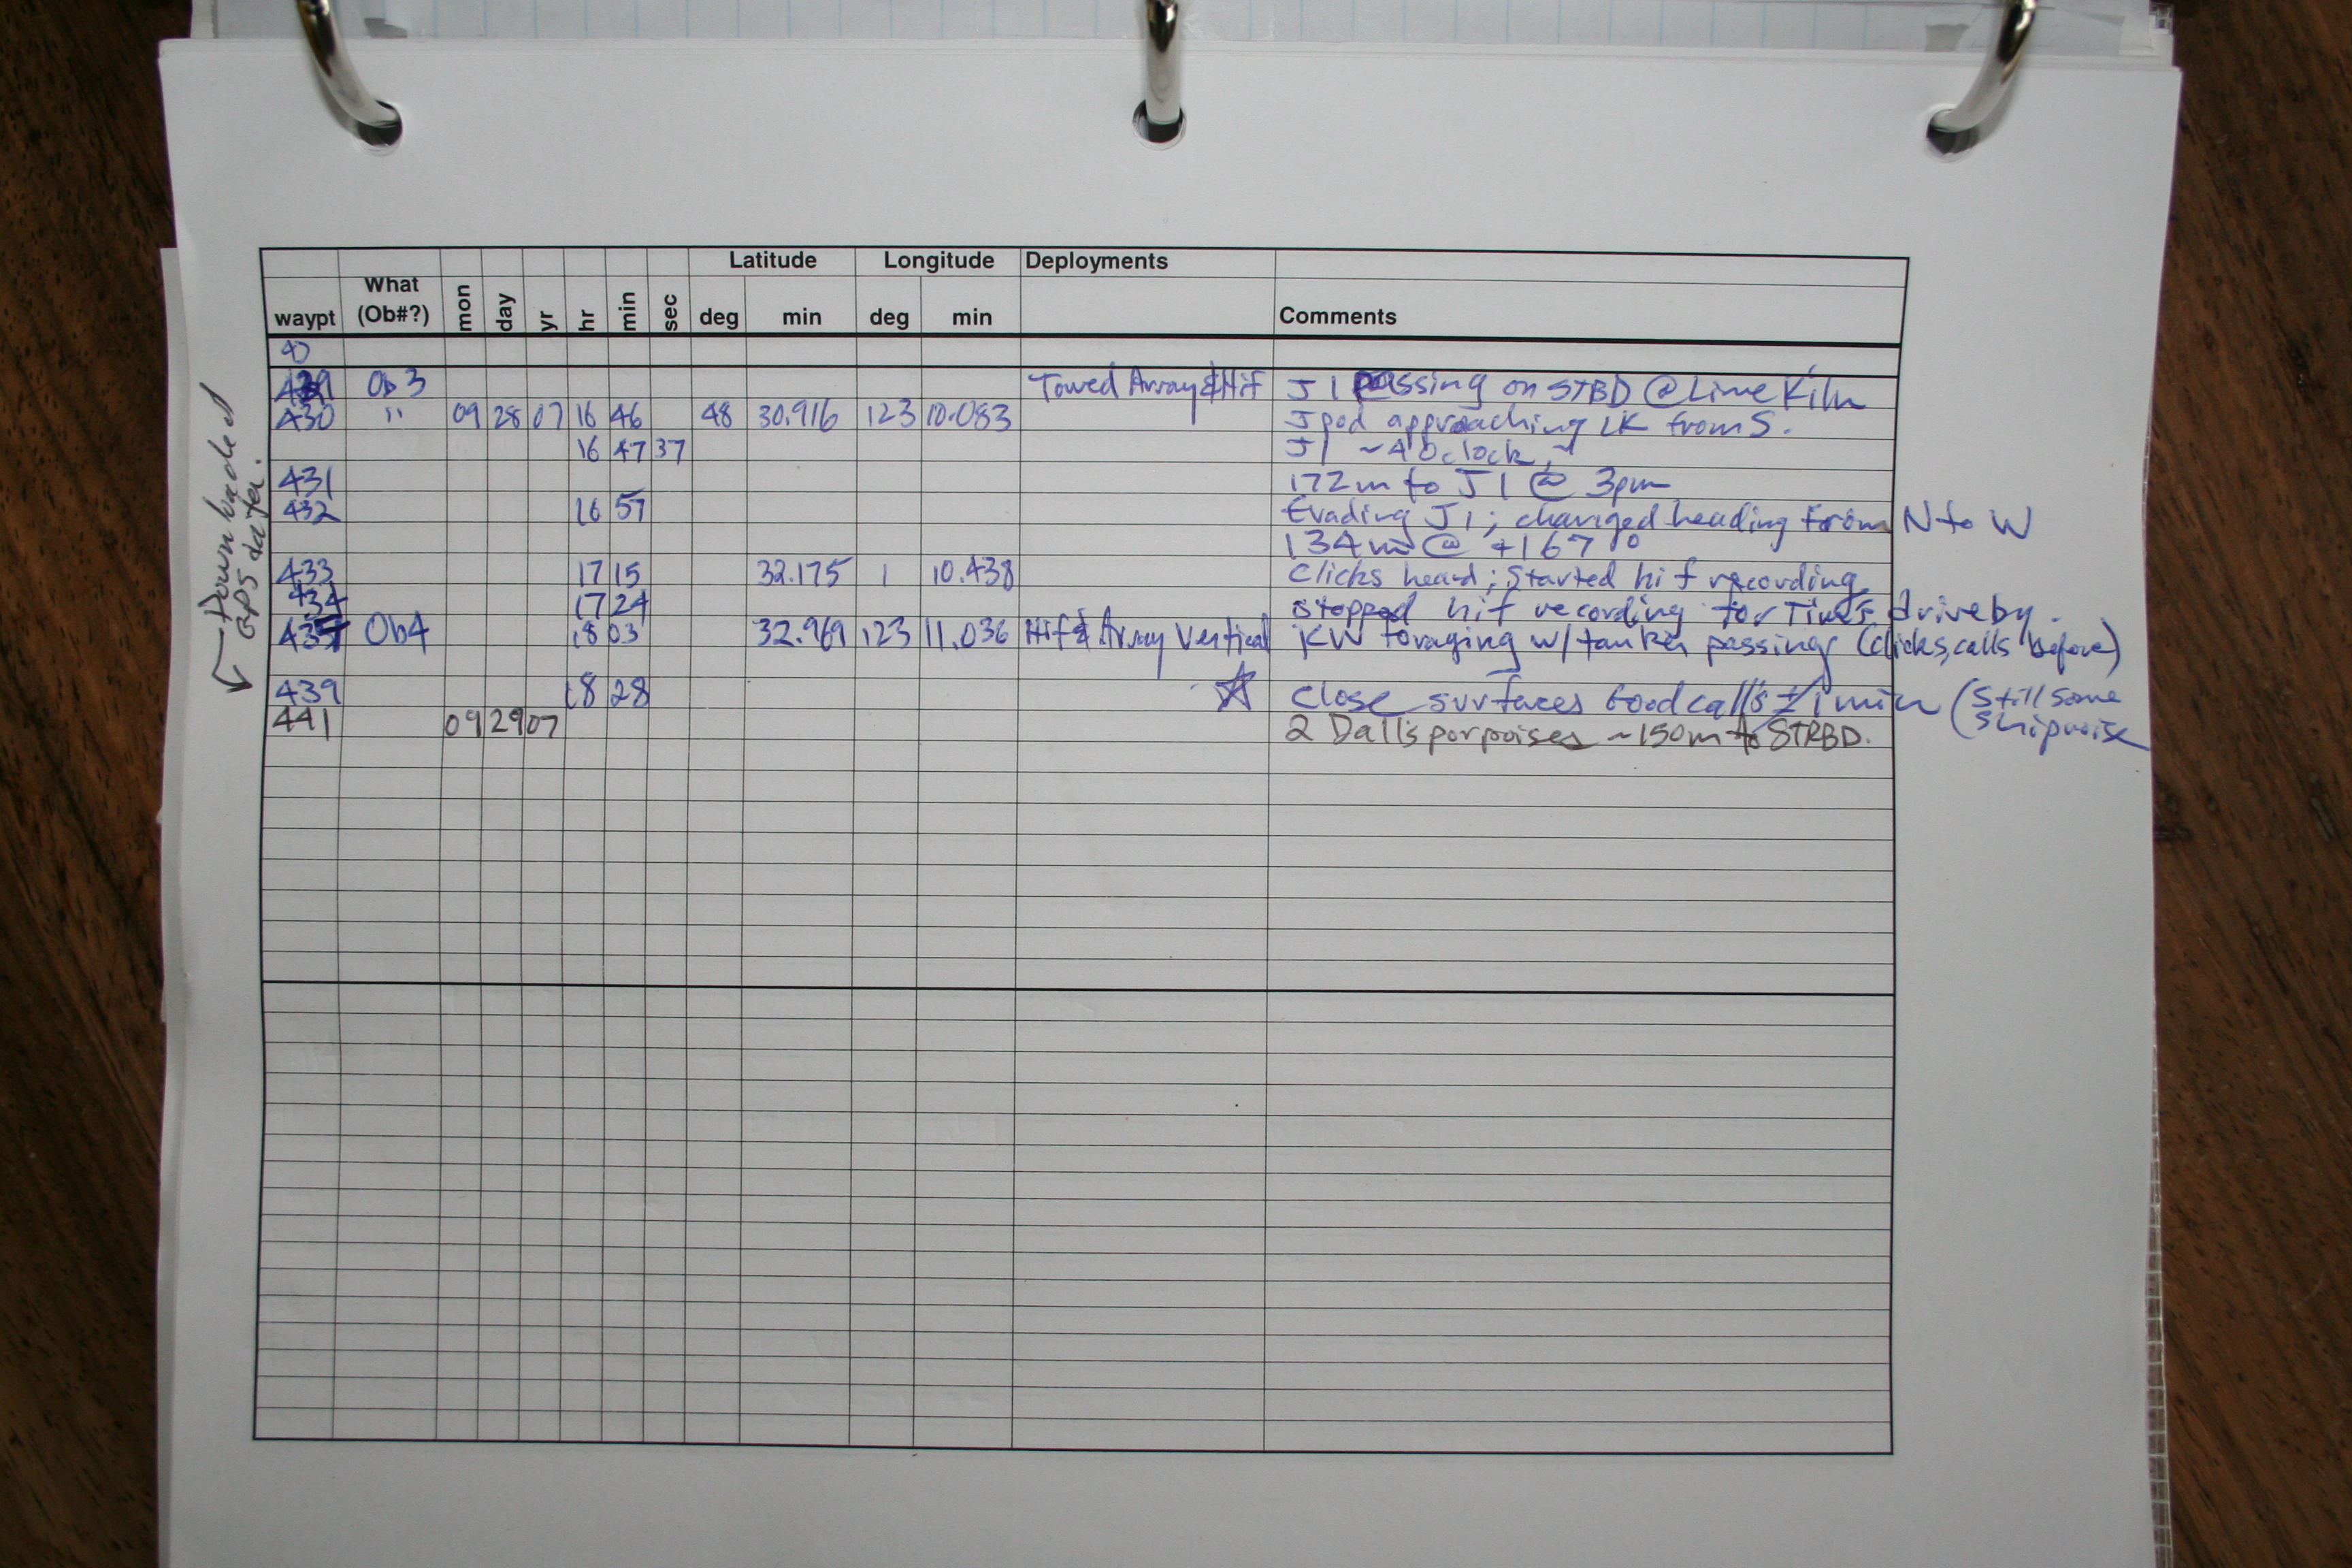 Latitude Longitude Deployments
waypt What (Ob#?) mon day yr hr min sec deg min deg min Comments
429 Ob 3 Towed Array & Hif J1 passing on STBD @ Lime Kiln
430 " 09 28 07 16 46 48 30.916 123 10.083 J pod approaching LK from S.
16 47 37 J1 ~4 O'clock,
431 172m to J1 @ 3pm
432 16 57 Evading J1; changed heading from N to W
134m @ +167°
433 17 15 32.175 1 10.438 Clicks heard; Started hif recording
434 17 24 Stopped hif recording for Tim's driveby.
435 Ob4 18 03 32.969 123 11.036 Hif & Array Vertical KW foraging w/ tanker passing (clicks, calls before)
439 18 28 ☆ Close surfaces Good calls ±1 min (Still some
shipnoise
441 09 29 07 2 Dall's porpoises ~150m to STRBD.
Downloaded
GPS data